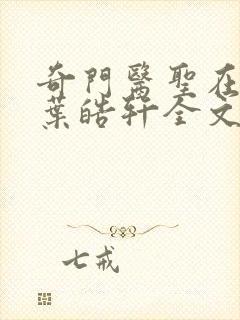 奇門醫聖在
葉皓軒全文
七戒